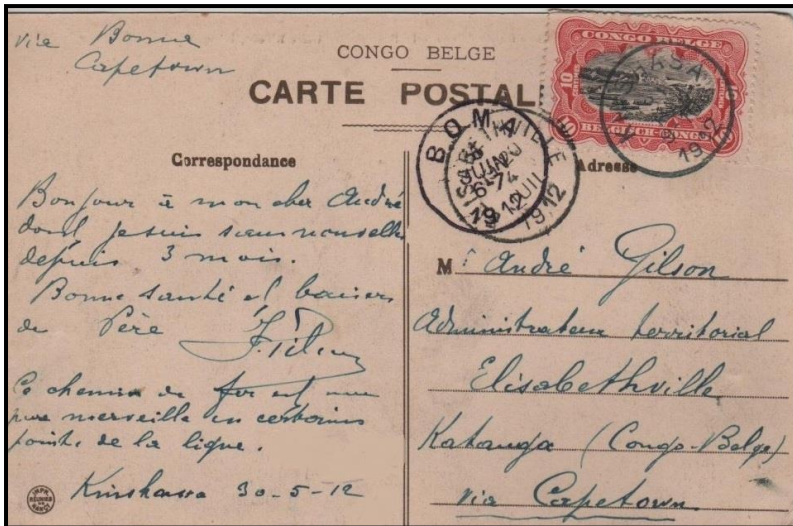 via Boma
Capetown
CONGO BELGE
CARTE POSTAL
Correspondance
Adresse
CONGO BELGE
10
BELGISCH-CONGO
BOMA
JUIN
1912
1912
1912
Bonjour à mon cher André
dont je suis sans nouvelles
depuis 3 mois.
Bonne santé et baisers
de Père
Ce chemin de fer est une
pure merveille en certains
points de la ligne.
Kinshassa 30-5-12
M. André Gilson
Administrateur territorial
Elisabethville
Katanga (Congo-Belge)
via Capetown